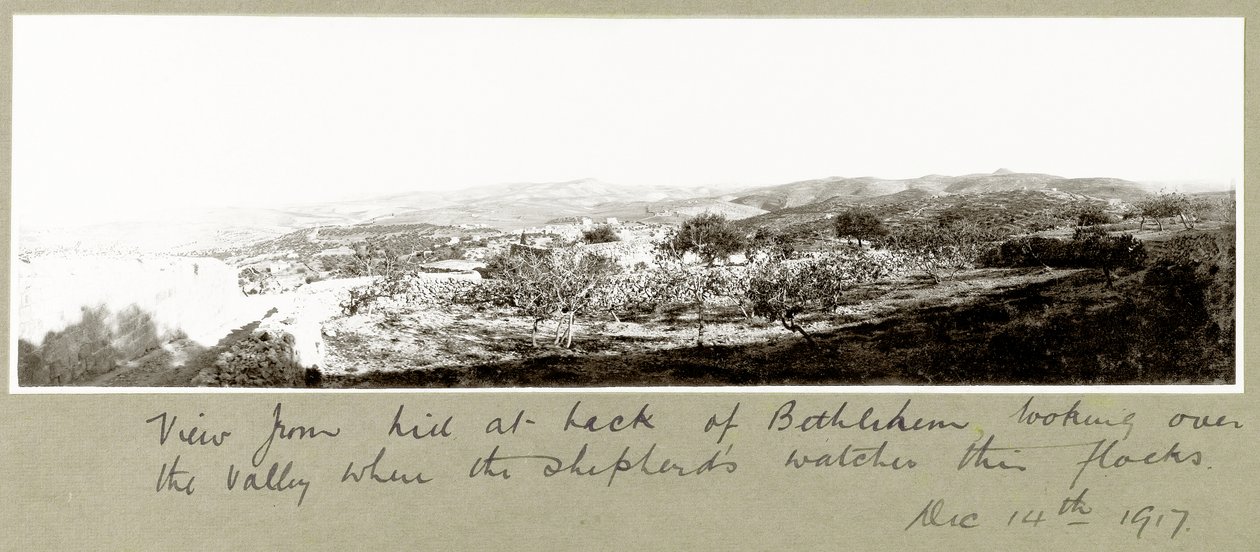 View from hill at back of Bethlehem, looking over
the valley where the shepherd's watches their flocks.
Dec 14th 1917.